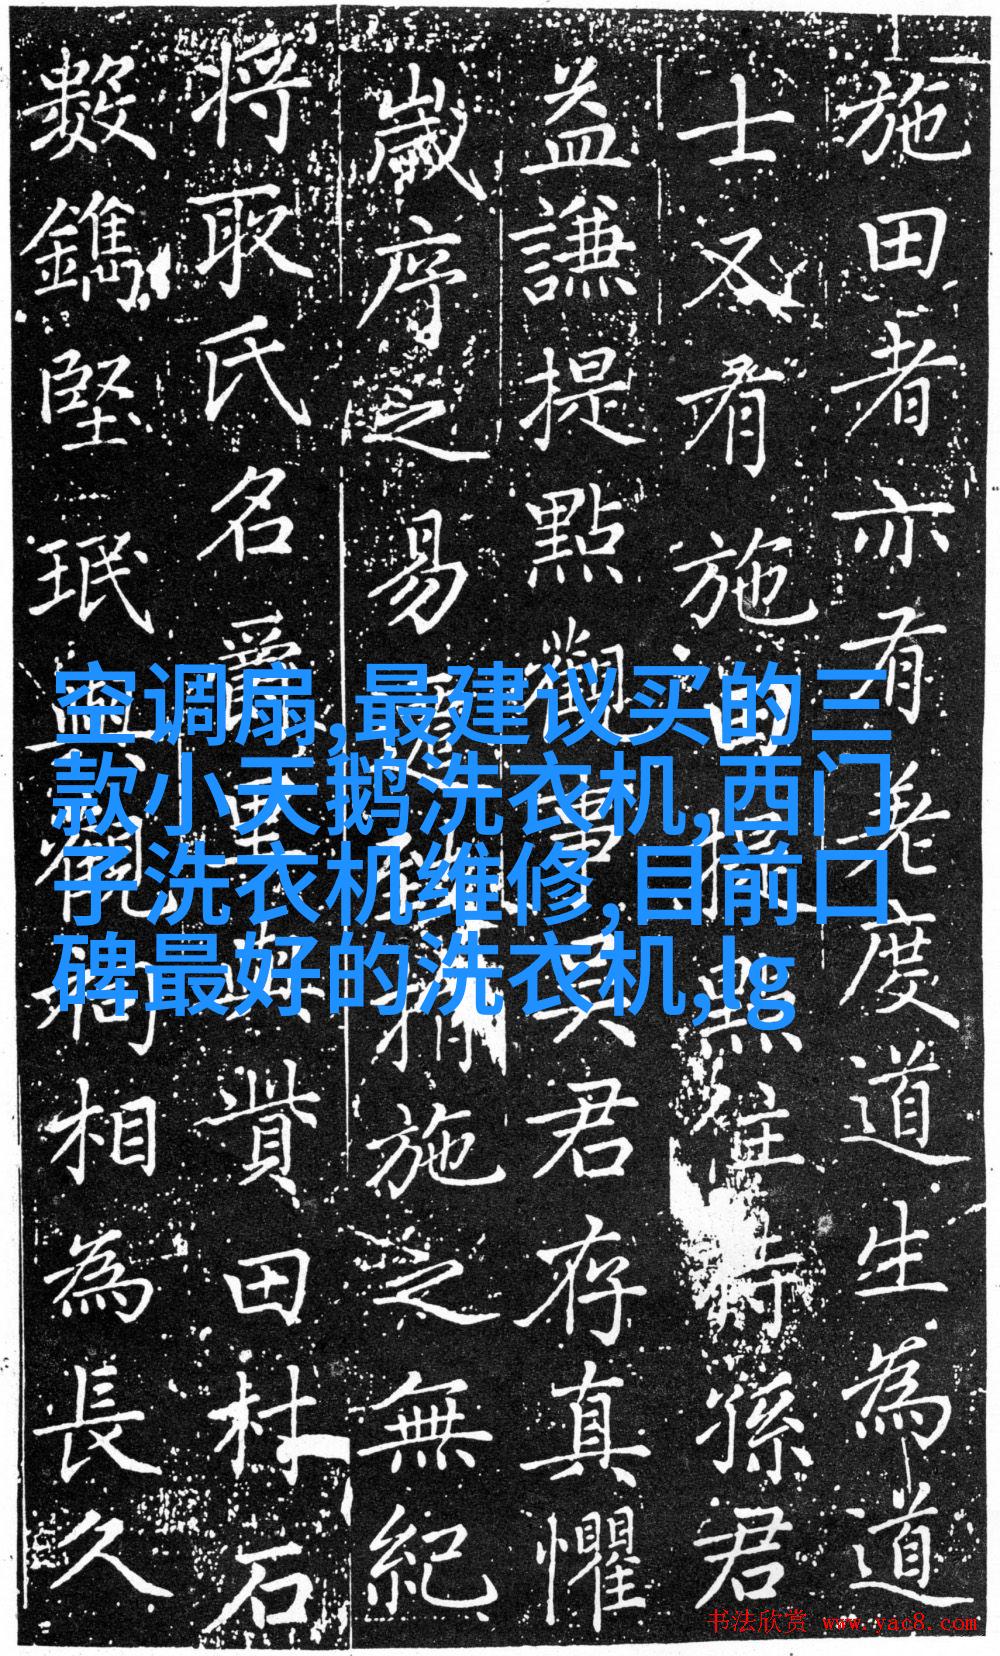 施田者亦有老度道生為道
士又有施田提點住持孫君
益謙提點觀事吳君存真懼
歲序之易施之無紀
將取氏名爵里貲田石
鐫堅珉相為長久
空调扇,最建议买的三
款小天鹅洗衣机,西门
子洗衣机维修,目前口
碑最好的洗衣机,lg
书法欣赏 www.yac8.com